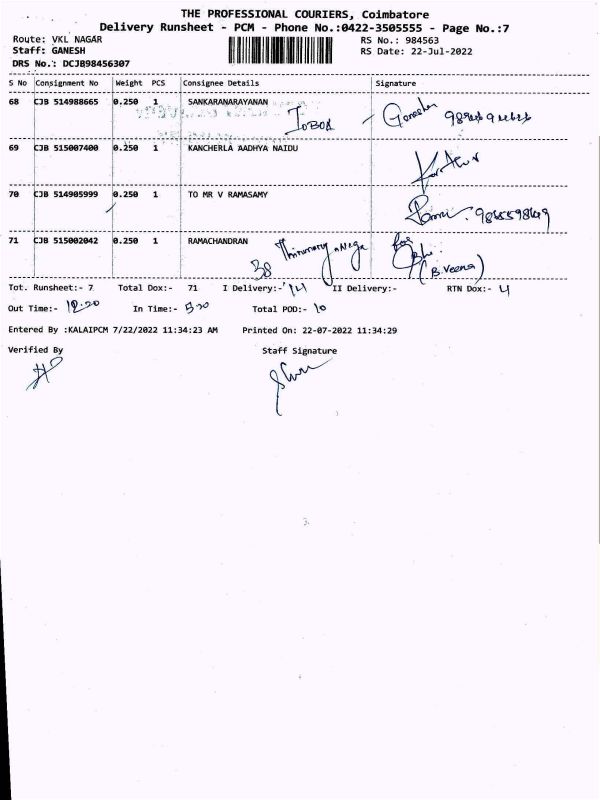 THE PROFESSIONAL COURIERS, Coimbatore
Delivery Runsheet - PCM - Phone No.:0422-3505555 - Page No.:7
Route: VKL NAGAR RS No.: 984563
Staff: GANESH RS Date: 22-Jul-2022
DRS No.: DCJB98456307
S No Consignment No Weight PCS Consignee Details Signature
68 CJB 514988665 0.250 1 SANKARANARAYANAN
69 CJB 515007400 0.250 1 KANCHERLA AADHYA NAIDU
70 CJB 514905999 0.250 1 TO MR V RAMASAMY
71 CJB 515002042 0.250 1 RAMACHANDRAN
38
(B.Veena)
Tot. Runsheet:- 7 Total Dox:- 71 I Delivery:- 14 II Delivery:- RTN Dox:- 4
Out Time:- 12.20 In Time:- 5.20 Total POD:- 10
Entered By :KALAIPCM 7/22/2022 11:34:23 AM Printed On: 22-07-2022 11:34:29
Verified By Staff Signature